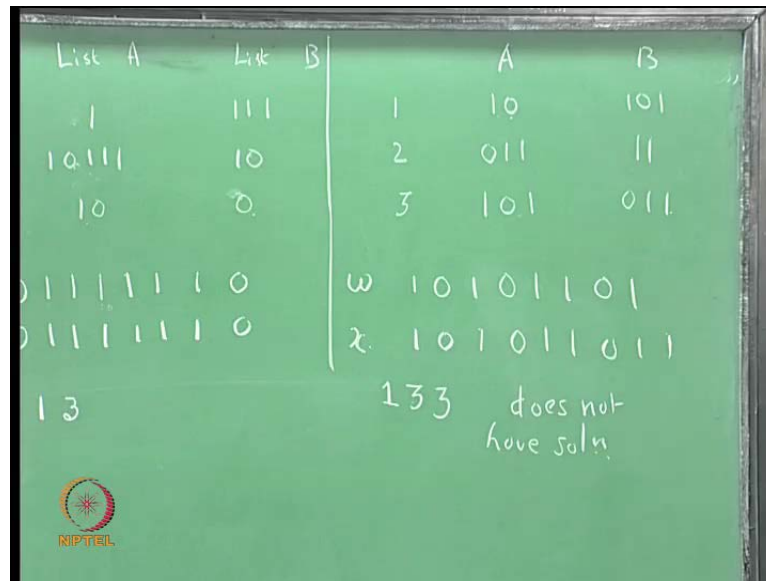 List A List B
1 111
10111 10
10 0
0 1 1 1 1 1 1 0
0 1 1 1 1 1 1 0
1 3
A B
1 10 101
2 011 11
3 101 011
w 1 0 1 0 1 1 0 1
x. 1 0 1 0 1 1 0 1 1
133 does not
have soln
NPTEL